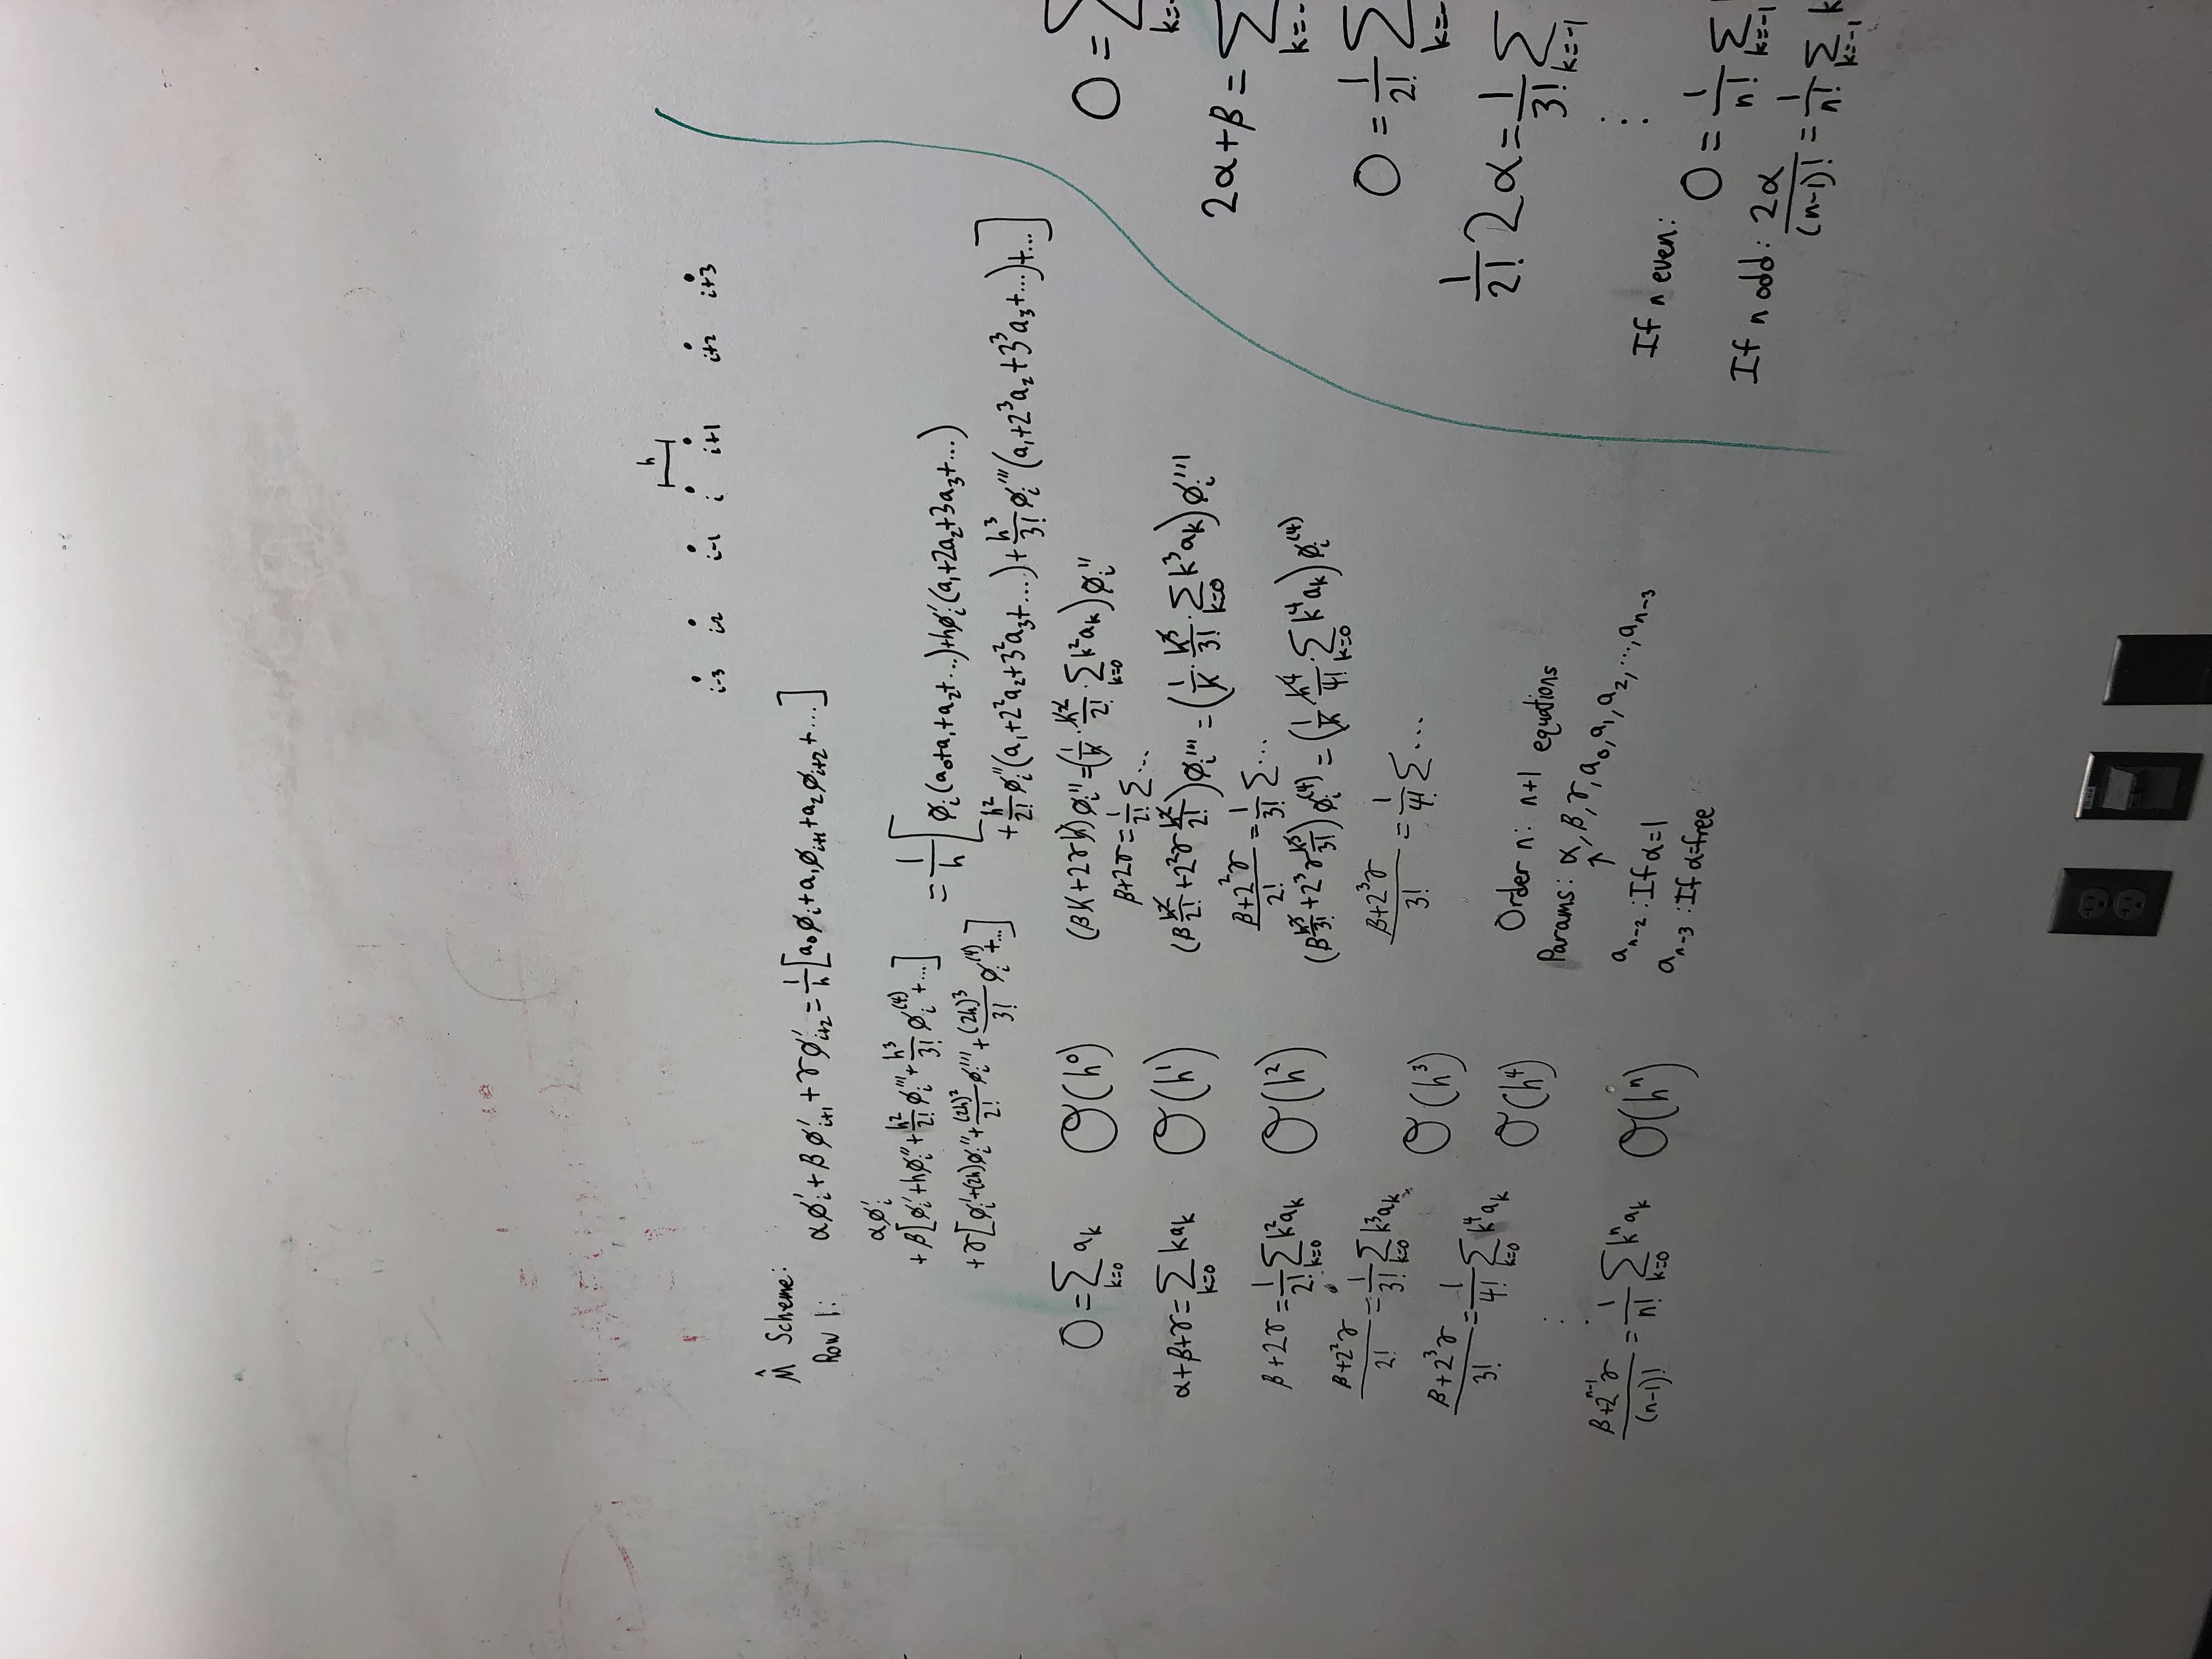 h
i-3 i-2 i-1 i i+1 i+2 i+3
M̂ Scheme:
Row 1: αφ'ᵢ + βφ'ᵢ₊₁ + γφ'ᵢ₊₂ = 1/h [a₀φᵢ + a₁φᵢ₊₁ + a₂φᵢ₊₂ + ...]
αφ'ᵢ
+ β[φᵢ' + hφᵢ'' + h²/2! φᵢ''' + h³/3! φᵢ⁽⁴⁾ + ...]
+ γ[φᵢ' + (2h)φᵢ'' + (2h)²/2! φᵢ''' + (2h)³/3! φᵢ⁽⁴⁾ + ...]
= 1/h [φᵢ(a₀+a₁+a₂+...) + hφᵢ'(a₁+2a₂+3a₃+...)
+ h²/2! φᵢ''(a₁+2²a₂+3²a₃+....) + h³/3! φᵢ'''(a₁+2³a₂+3³a₃+...)+...]
0 = Σ_{k=0} aₖ O(h⁰)
α+β+γ = Σ_{k=0} kaₖ O(h¹)
β+2γ = 1/2! Σ_{k=0} k²aₖ O(h²)
(β+2²γ)/2! = 1/3! Σ_{k=0} k³aₖ O(h³)
(β+2³γ)/3! = 1/4! Σ_{k=0} k⁴aₖ O(h⁴)
⋮
(β+2ⁿ⁻¹γ)/(n-1)! = 1/n! Σ_{k=0} kⁿaₖ O(hⁿ)
(βh+2γh)φᵢ'' = (1/h · h²/2! · Σ_{k=0} k²aₖ)φᵢ''
β+2γ = 1/2! Σ...
(β h²/2! + 2²γ h²/2!)φᵢ''' = (1/h · h³/3! · Σ_{k=0} k³aₖ)φᵢ'''
(β+2²γ)/2! = 1/3! Σ...
(β h³/3! + 2³γ h³/3!)φᵢ⁽⁴⁾ = (1/h · h⁴/4! · Σ_{k=0} k⁴aₖ)φᵢ⁽⁴⁾
(β+2³γ)/3! = 1/4! Σ...
Order n: n+1 equations
Params: α, β, γ, a₀, a₁, a₂, ..., aₙ₋₃
↑
aₙ₋₂: If α=1
aₙ₋₃: If α=free
0 = Σ k=-
2α+β = Σ k=-
0 = 1/2! Σ k=-
1/2! 2α = 1/3! Σ k=-1
⋮
If n even:
0 = 1/n! Σ k=-1
If n odd: 2α/(n-1)! = 1/n! Σ k=-1 k